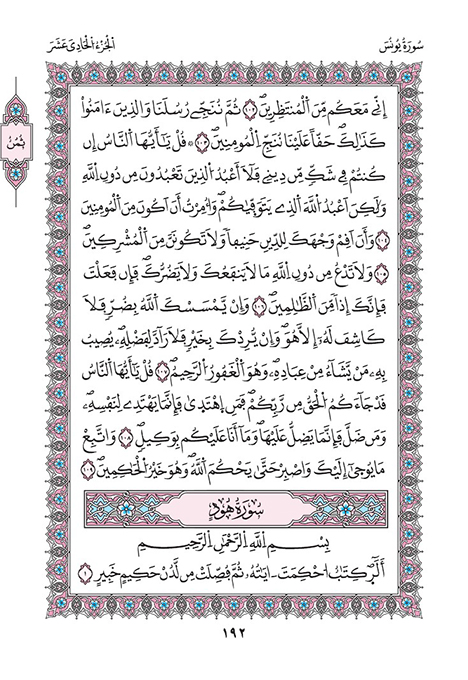 سُورَةُ يُونُسَ
الْجُزْءُ الْحَادِي عَشَرَ
ثُمُنُ
إِنِّے مَعَكُم مِّنَ اَ۬لْمُنتَظِرِينَۖ ١٠٢ ثُمَّ نُنَجِّے رُسُلَنَا وَالذِينَ ءَامَنُواْ
كَذَٰلِكَۖ حَقّاً عَلَيْنَا نُنَجِّ اِ۬لْمُومِنِينَۖ ١٠٣ ۞ قُلْ يَٰٓأَيُّهَا اَ۬لنَّاسُ إِن
كُنتُمْ فِے شَكّٖ مِّن دِينِے فَلَآ أَعْبُدُ اُ۬لذِينَ تَعْبُدُونَ مِن دُونِ اِ۬للَّهِ
وَلَٰكِنَ اَعْبُدُ اُ۬للَّهَ اَ۬لذِے يَتَوَفَّيٰكُمْۖ وَأُمِرْتُ أَنَ اَكُونَ مِنَ اَ۬لْمُومِنِينَ
١٠٤ وَأَنَ اَقِمْ وَجْهَكَ لِلدِّينِ حَنِيفاٗ وَلَا تَكُونَنَّ مِنَ اَ۬لْمُشْرِكِينَۖ
١٠٥ وَلَا تَدْعُ مِن دُونِ اِ۬للَّهِ مَا لَا يَنفَعُكَ وَلَا يَضُرُّكَۖ فَإِن فَعَلْتَ
فَإِنَّكَ إِذاٗ مِّنَ اَ۬لظَّٰلِمِينَۖ ١٠٦ وَإِنْ يَّمْسَسْكَ اَ۬للَّهُ بِضُرّٖ فَلَا
كَاشِفَ لَهُۥٓ إِلَّا هُوَۖ وَإِنْ يُّرِدْكَ بِخَيْرٖ فَلَا رَآدَّ لِفَضْلِهِۦۖ يُصِيبُ
بِهِۦ مَنْ يَّشَآءُ مِنْ عِبَادِهِۦۖ وَهُوَ اَ۬لْغَفُورُ اُ۬لرَّحِيمُۖ ١٠٧ قُلْ يَٰٓأَيُّهَا اَ۬لنَّاسُ
قَدْ جَآءَكُمُ اُ۬لْحَقُّ مِن رَّبِّكُمْۖ فَمَنِ اِ۪هْتَد۪يٰ فَإِنَّمَا يَهْتَدِے لِنَفْسِهِۦۖ
وَمَن ضَلَّ فَإِنَّمَا يَضِلُّ عَلَيْهَاۖ وَمَآ أَنَا عَلَيْكُم بِوَكِيلٖۖ ١٠٨ وَاتَّبِعْ
مَا يُوح۪يٰٓ إِلَيْكَ وَاصْبِرْ حَتَّيٰ يَحْكُمَ اَ۬للَّهُۖ وَهُوَ خَيْرُ اُ۬لْحَٰكِمِينَۖ ١٠٩
سُورَةُ هُودٍ
بِسْمِ اِ۬للَّهِ اِ۬لرَّحْمَٰنِ اِ۬لرَّحِيمِ
أَلَٓر۪ۖ كِتَٰبٌ اُحْكِمَتَ اٰيَٰتُهُۥ ثُمَّ فُصِّلَتْ مِن لَّدُنْ حَكِيمٍ خَبِيرٍ ١
١٩٢